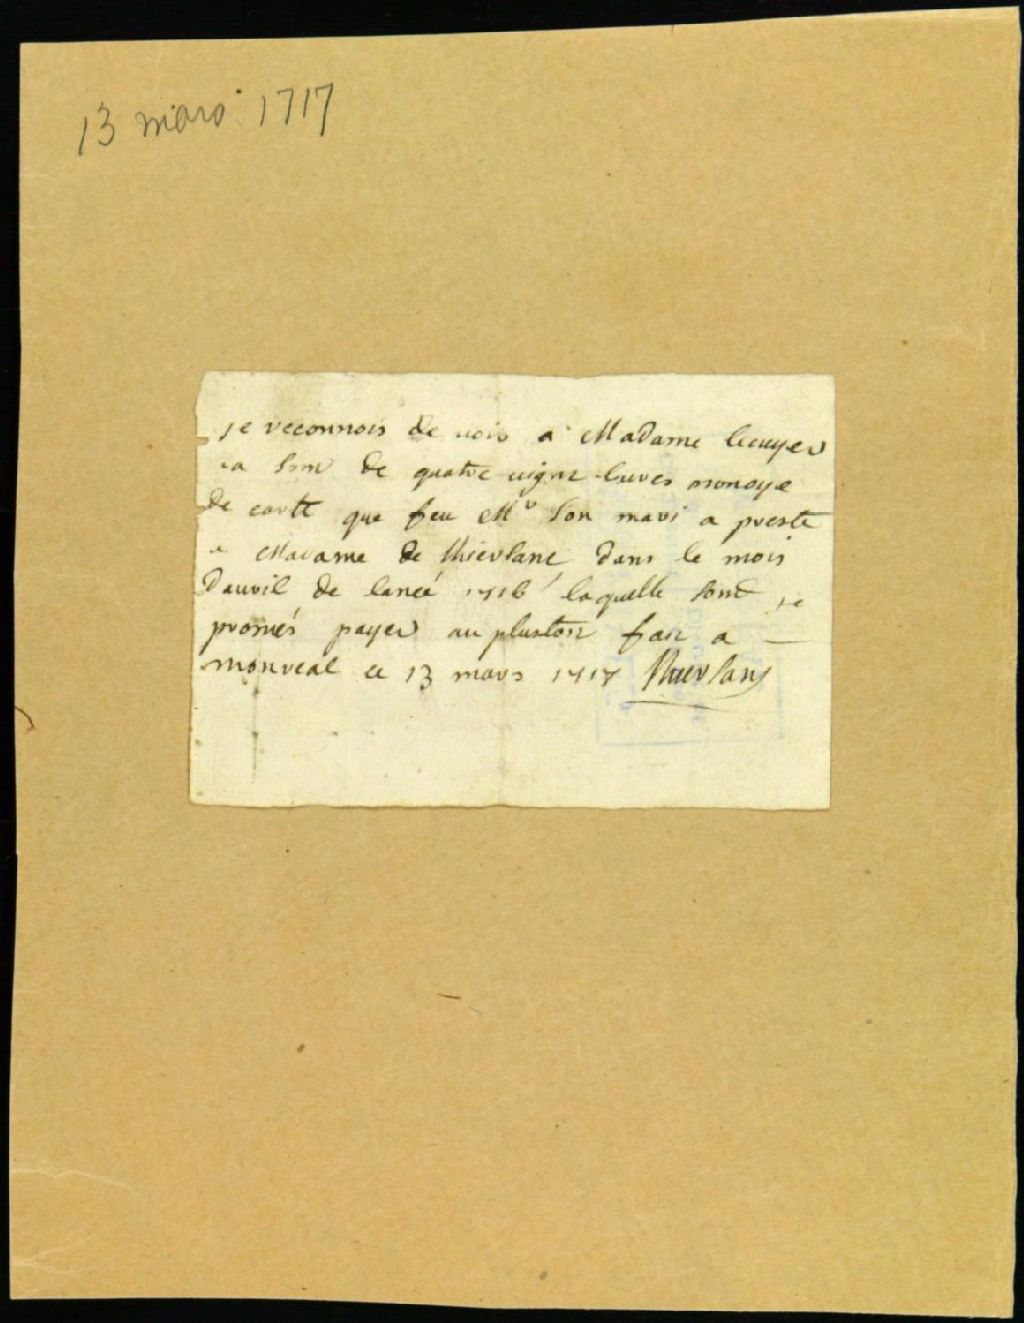 13 mars 1717
je reconnois de voir a Madame lecuyer
la som de quatre vignt livres monoye
de carte que feu Mr son mari a preste
a Madame de Thiersant dans le mois
dauvril de lanéé 1716 laquelle som je
promés payer au plustost fait a
monreal ce 13 mars 1717 Thiersant